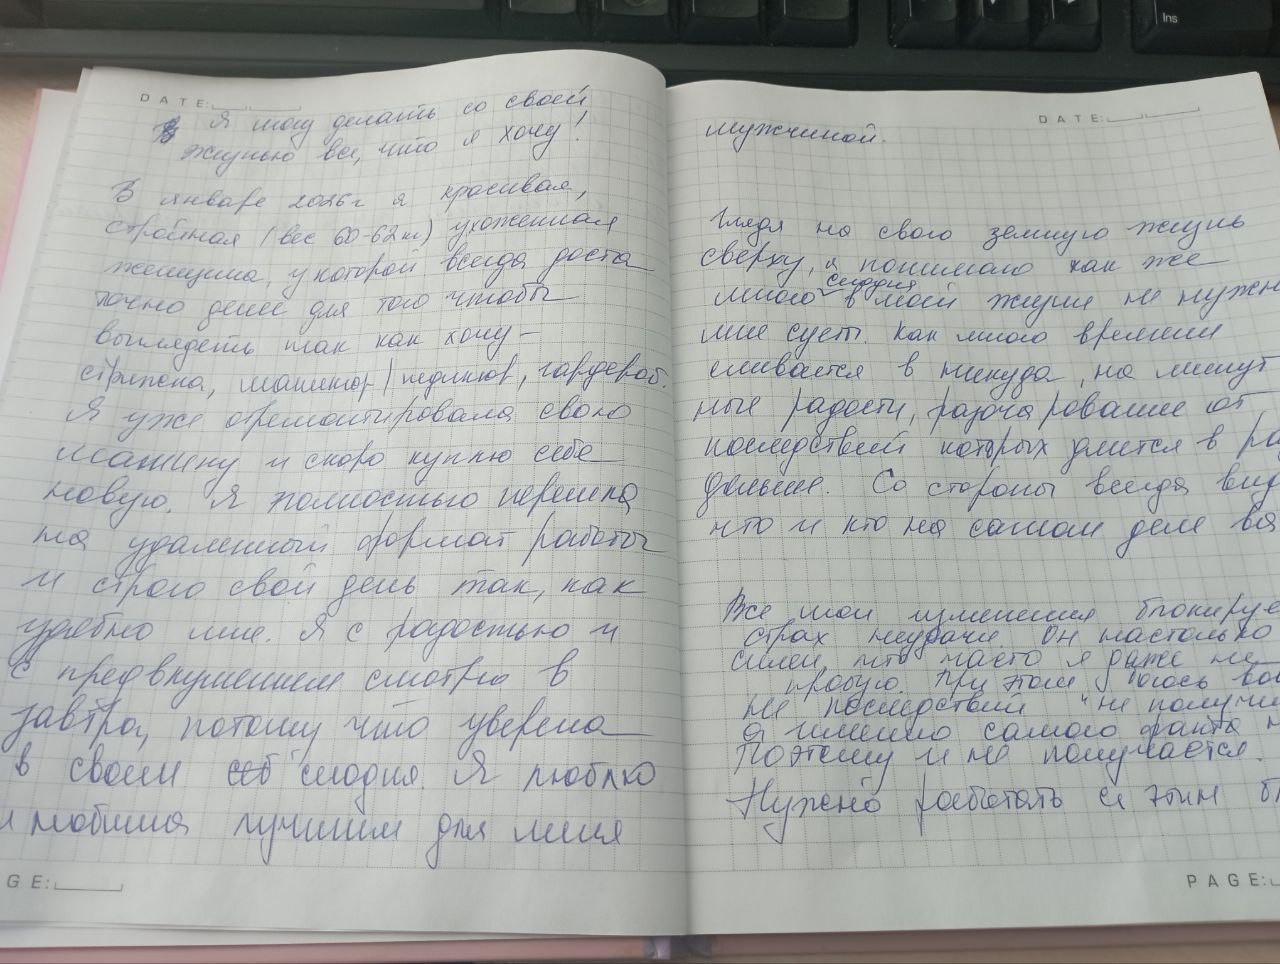 Ins
DATE:
Я могу делать со своей
жизнью все, что я хочу!
В январе 2026г я красивая,
стройная (вес 60-62кг) ухоженная
женщина, у которой всегда доста
точно денег для того чтобы
выглядеть так как хочу –
стрижка, маникюр/педикюр, гардероб.
Я уже отремонтировала свою
машину и скоро куплю себе
новую. Я полностью перешла
на удаленный формат работы
и строю свой день так, как
удобно мне. Я с радостью и
с предвкушением смотрю в
завтра, потому что уверена
в своем сегодня. Я люблю
и любима лучшим для меня
GE:
DATE:
мужчиной.
Глядя на свою земную жизнь
сверху, я понимаю как же
много сегодня в моей жизни не нужн
мне суеты. Как много времени
сливается в никуда, на минут
ные радости, разочарование от
последствий которых длится в ра
дольше. Со стороны всегда вид
что и кто на самом деле ва
Все мои изменения блокируе
страх неудачи. Он настолько
силен, что часто я даже не
пробую. При этом я боюсь во
не последствий "не получи
а именно самого факта н
Поэтому и не получается.
Нужно работать с этим бл
PAGE: